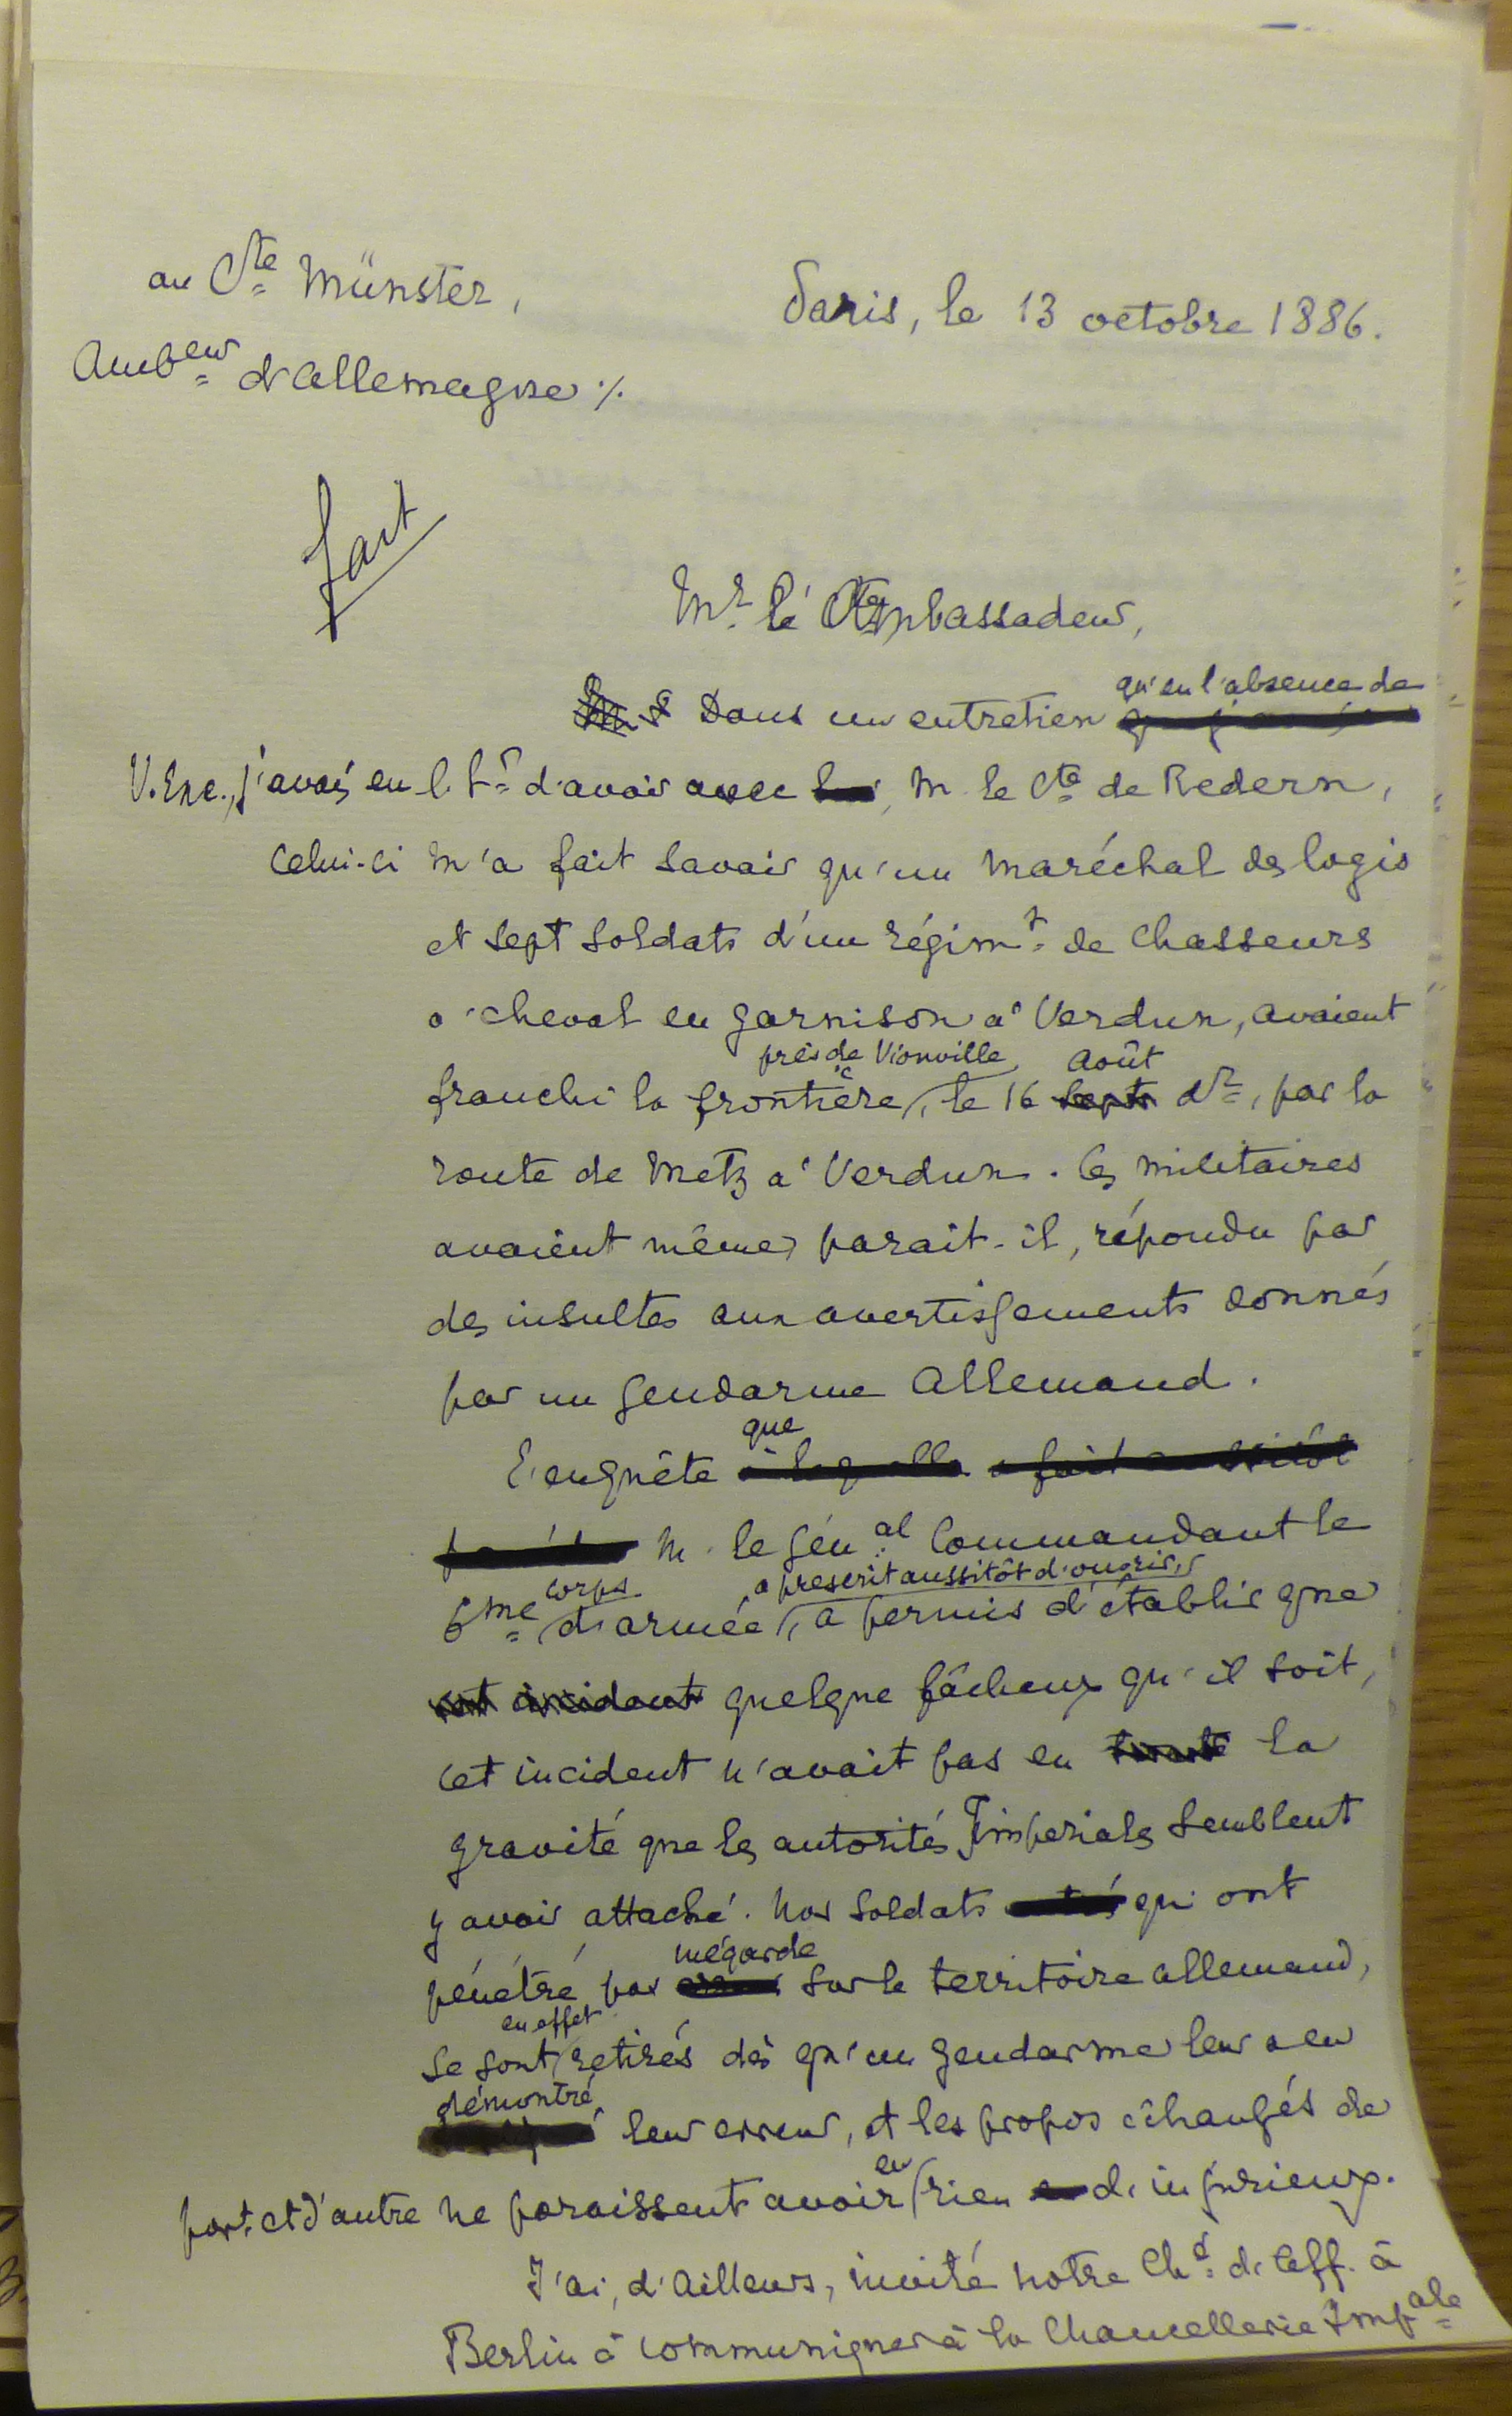 au Cte Münster,
Paris, le 13 octobre 1886.
Ambeur d'Allemagne ./.
fait
Mr. le Cte Ambassadeur,
qu'en l'absence de
Dans un entretien
V. Exc., j'avais eu l. hr d'avoir avec M. le Cte de Redern,
celui-ci m'a fait savoir qu'un maréchal des logis
et sept soldats d'un régimt de chasseurs
à cheval en garnison à Verdun, avaient
près de Vionville, août
franchi la frontière, le 16 sept. dr, par la
route de Metz à Verdun. Ces militaires
avaient même, parait-il, répondu par
des insultes aux avertissements donnés
par un gendarme allemand.
que
L'enquête à laquelle a fait aussitôt
M. le Génal Commandant le
corps a prescrit aussitôt d'ouvrir,
6me d'armée, a permis d'établir que
cet incident quelque fâcheux qu'il soit,
cet incident n'avait pas eu toute la
gravité que les autorités Impériales semblent
y avoir attaché. Nos soldats qui ont
mégarde
pénétré par sur le territoire allemand,
en effet
se sont retirés dès qu'un gendarme leur a eu
démontré
leur erreur, et les propos échangés de
eu
part et d'autre ne paraissent avoir rien d'injurieux.
J'ai, d'ailleurs, invité notre Chd d'Aff. à
Berlin à communiquer à la Chancellerie Impale